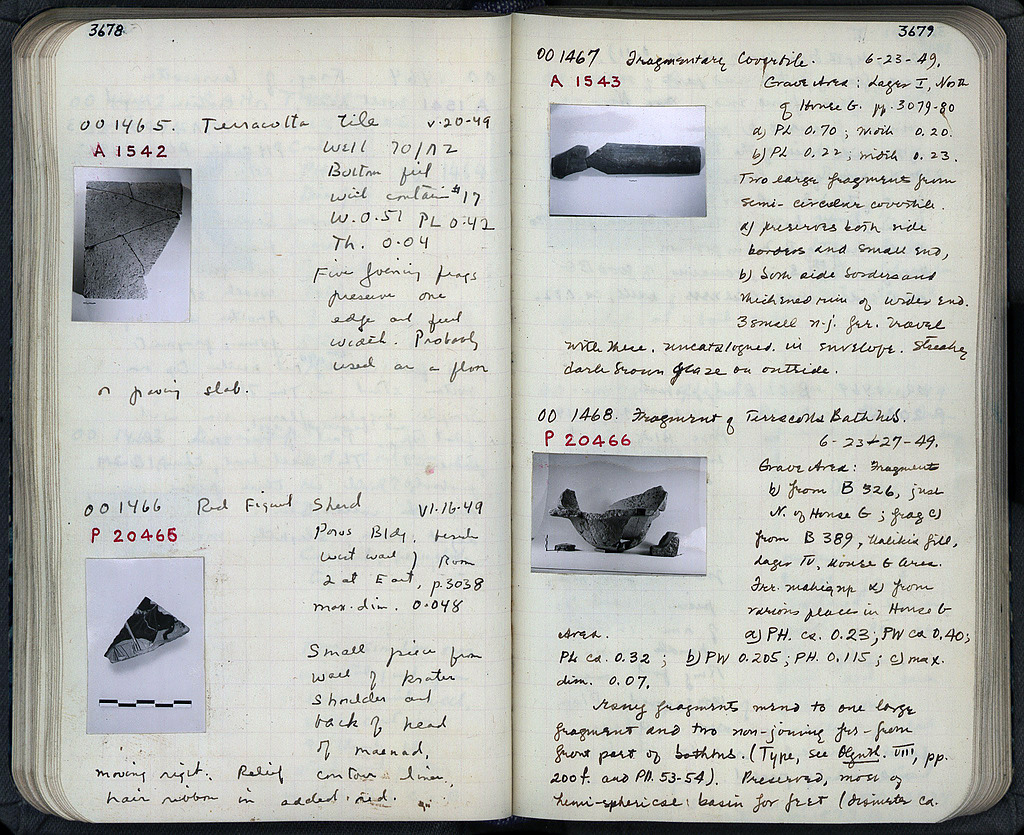 3678
OO 1465. Terracotta tile V-20-49
A 1542
Well 70/12
Bottom fill
well container #17
W. 0.51 PL 0.42
Th. 0.04
Five joining frags
preserve one
edge and full
width. Probably
used as a floor
or paving slab.
OO 1466 Red Figured Sherd VI-16-49
P 20465
Poros Bldg.
west wall, Room
2 at East, p.3038
max. dim. 0.048
Small piece from
wall of krater
shoulder and
back of head
of maenad,
moving right. Relief contour lines,
hair ribbon in added red.
3679
OO 1467 Fragmentary Covertile. 6-23-49.
A 1543
Grave Area: Layer I, North
of House G. pp. 3079-80
a) PL 0.70; width 0.20.
b) PL 0.22; width 0.23.
Two large fragments from
semi-circular covertile.
a) preserves both side
borders and small end,
b) both side borders and
thickened rim of wider end.
3 small n-j. frr. travel
with these, uncatalogued, in envelope. Streaky
dark brown glaze on outside.
OO 1468. Fragment of Terracotta Bathtub.
P 20466
6-23+27-49.
Grave Area: Fragment
b) from B 326, just
N. of House G; frag c)
from B 389, fill,
Layer IV, House G Area.
Frr. making up a) from
various places in House G
Area. a) PH. ca. 0.23; PW ca 0.40;
PL ca. 0.32; b) PW 0.205; PH. 0.115; c) max.
dim. 0.07.
Many fragments mend to one large
fragment and two non-joining frr. from
front part of bathtub. (Type, see Olynth. VIII, pp.
200 f. and Pll. 53-54). Preserved, most of
hemi-spherical basin for feet (diameter ca.